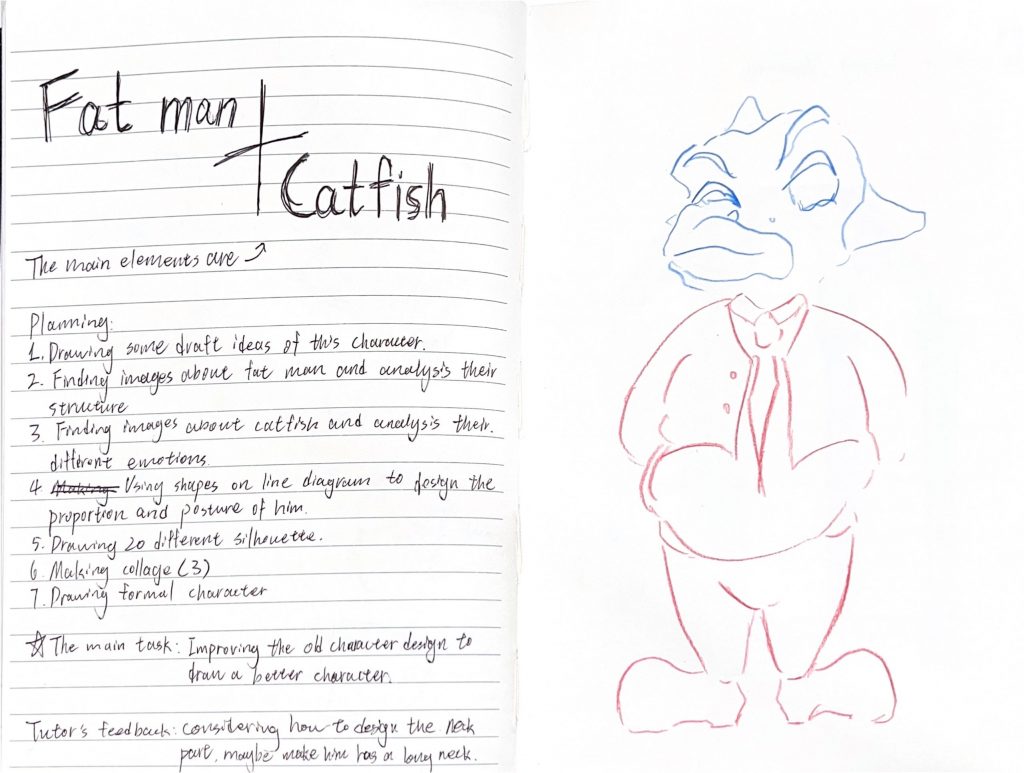 Fat man
+
Catfish
The main elements are
Planning:
1. Drawing some draft ideas of this character.
2. Finding images about fat man and analysis their
structure
3. Finding images about catfish and analysis their.
different emotions.
4. Making Using shapes on line diagram to design the
proportion and posture of him.
5. Drawing 20 different silhouette.
6. Making collage (3)
7. Drawing formal character
☆ The main task: Improving the old character design to
draw a better character.
Tutor's feedback: considering how to design the neck
part, maybe make him has a long neck.